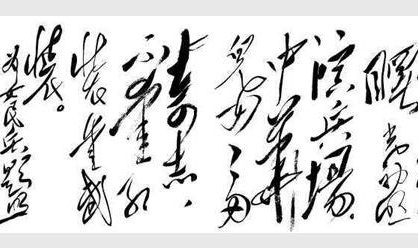 曙光初照
演兵场
中华
儿女多
奇志，
不爱红
装爱武
装。
为女民兵题照